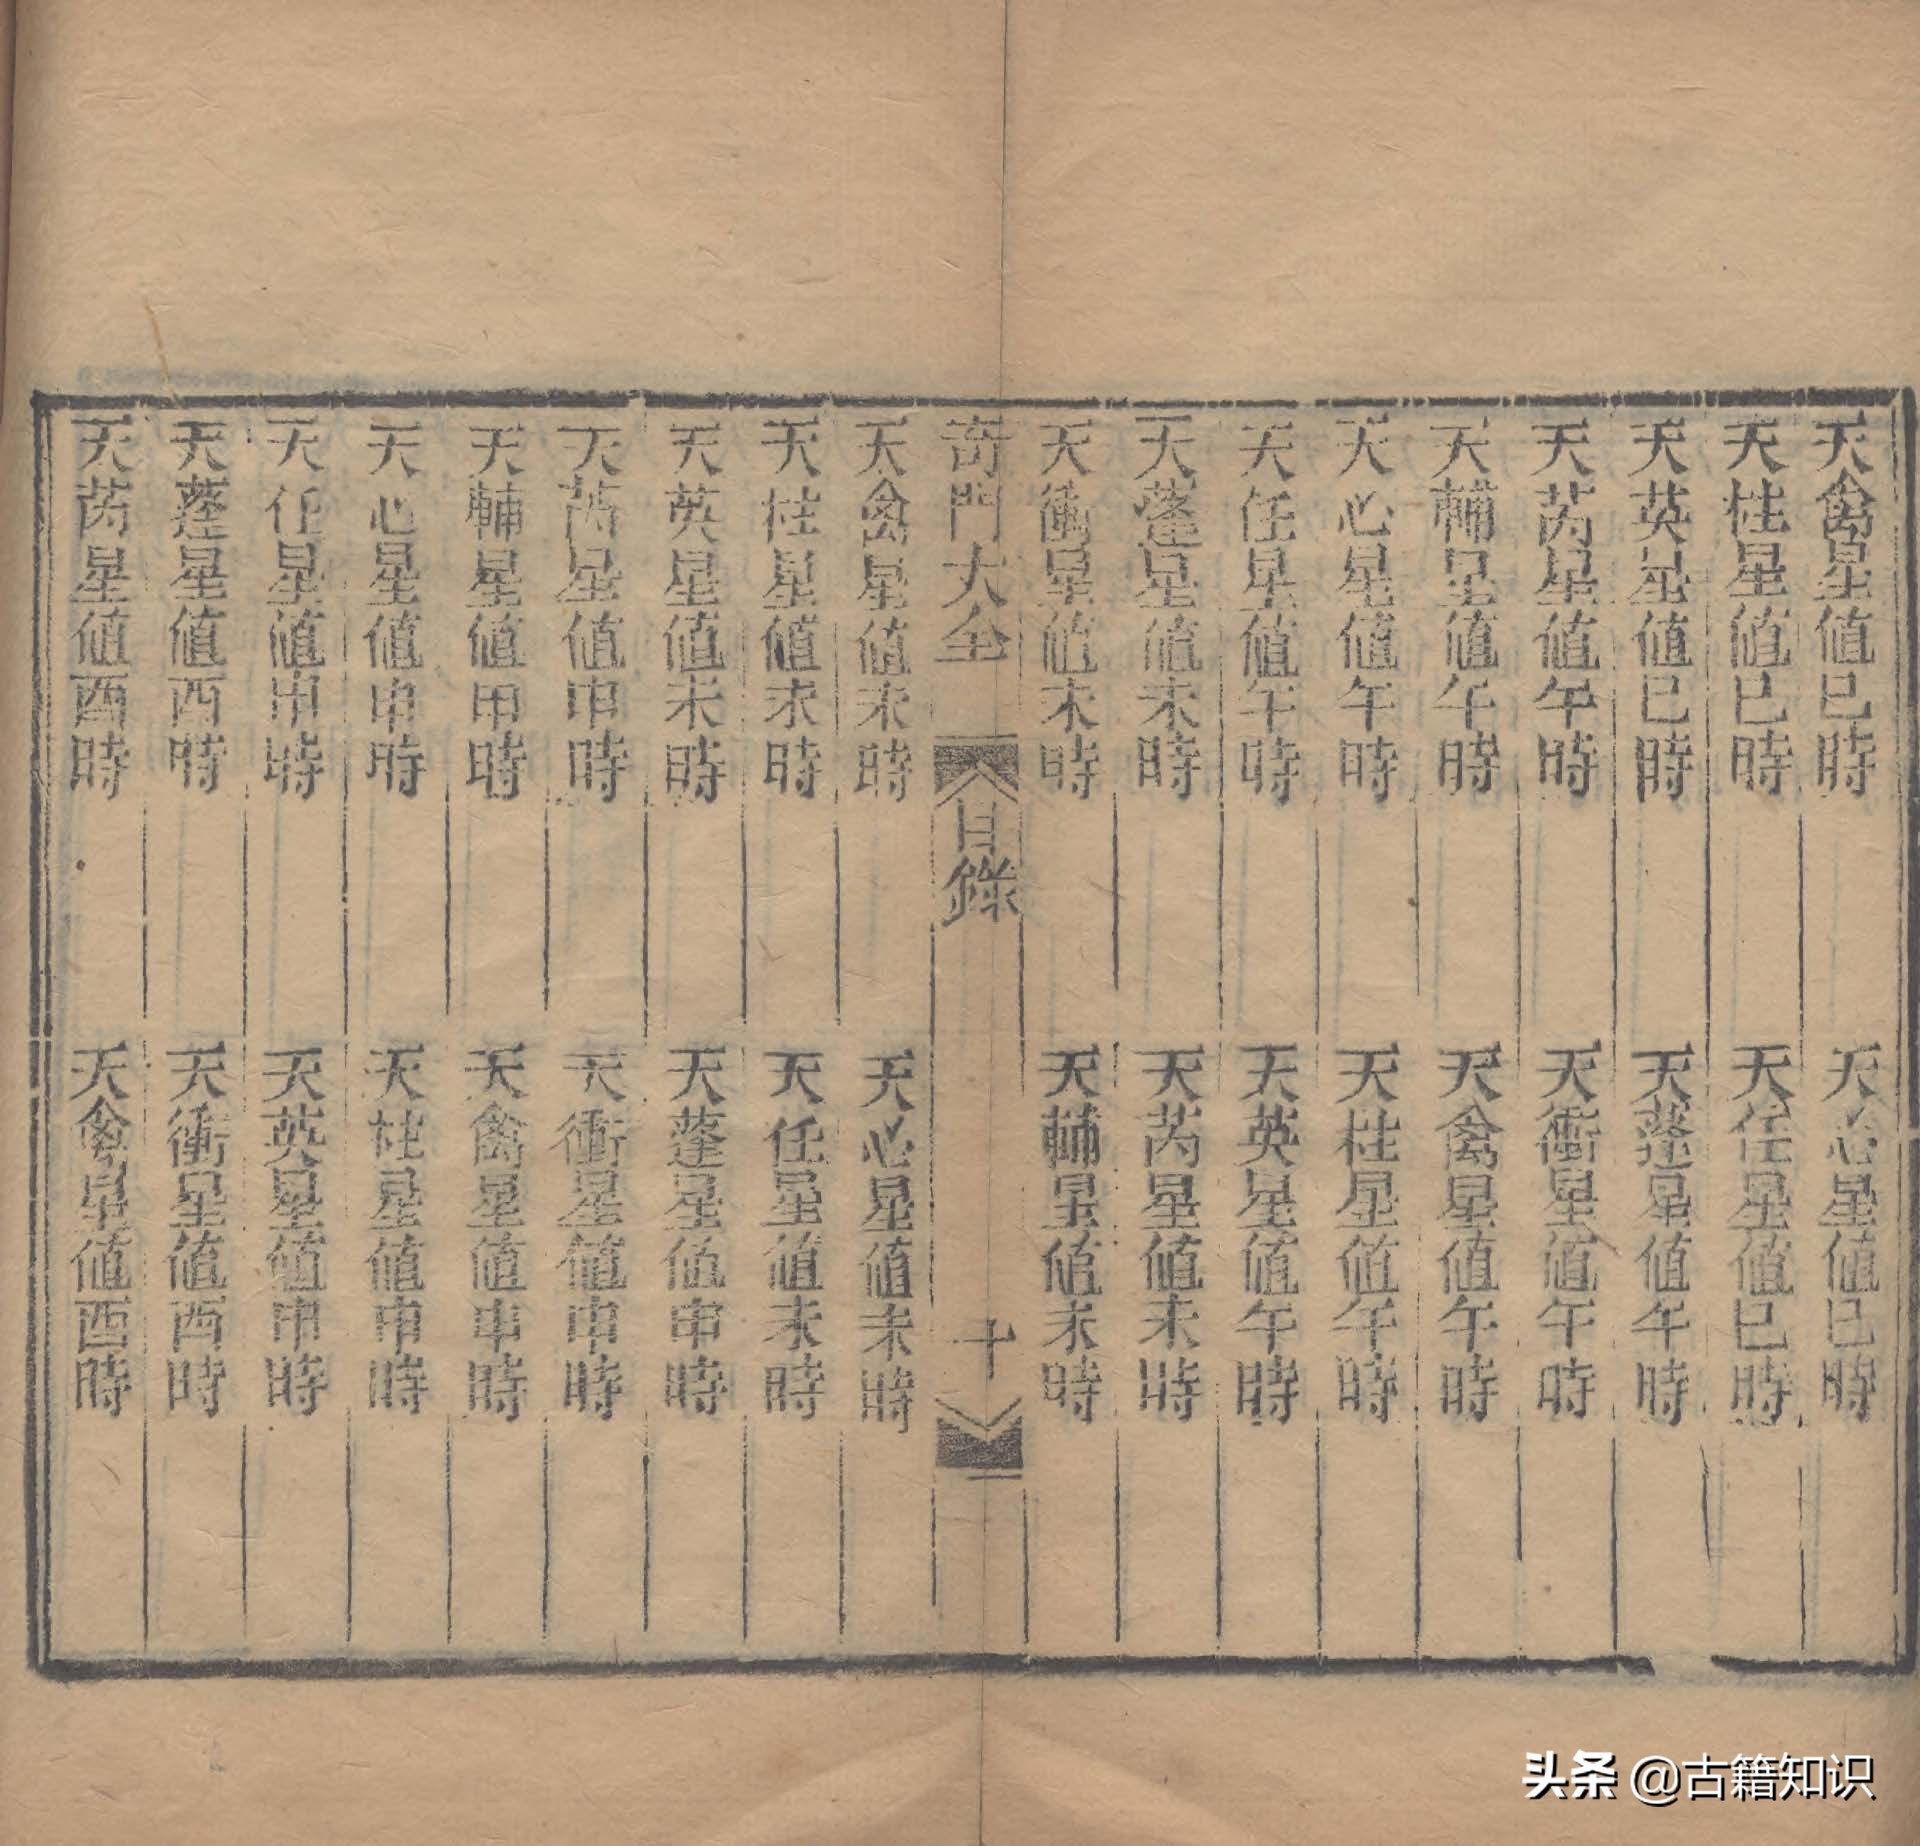 天禽星值巳時　天心星值巳時
天柱星值巳時　天任星值巳時
天英星值巳時　天蓬星值午時
天芮星值午時　天衝星值午時
天輔星值午時　天禽星值午時
天心星值午時　天柱星值午時
天任星值午時　天英星值午時
天蓬星值未時　天芮星值未時
天衝星值未時　天輔星值未時
奇門大全　目錄　十
天禽星值未時　天心星值未時
天柱星值未時　天任星值未時
天英星值未時　天蓬星值申時
天芮星值申時　天衝星值申時
天輔星值申時　天禽星值申時
天心星值申時　天柱星值申時
天任星值申時　天英星值申時
天蓬星值酉時　天衝星值酉時
天芮星值酉時　天禽星值酉時
头条 @古籍知识